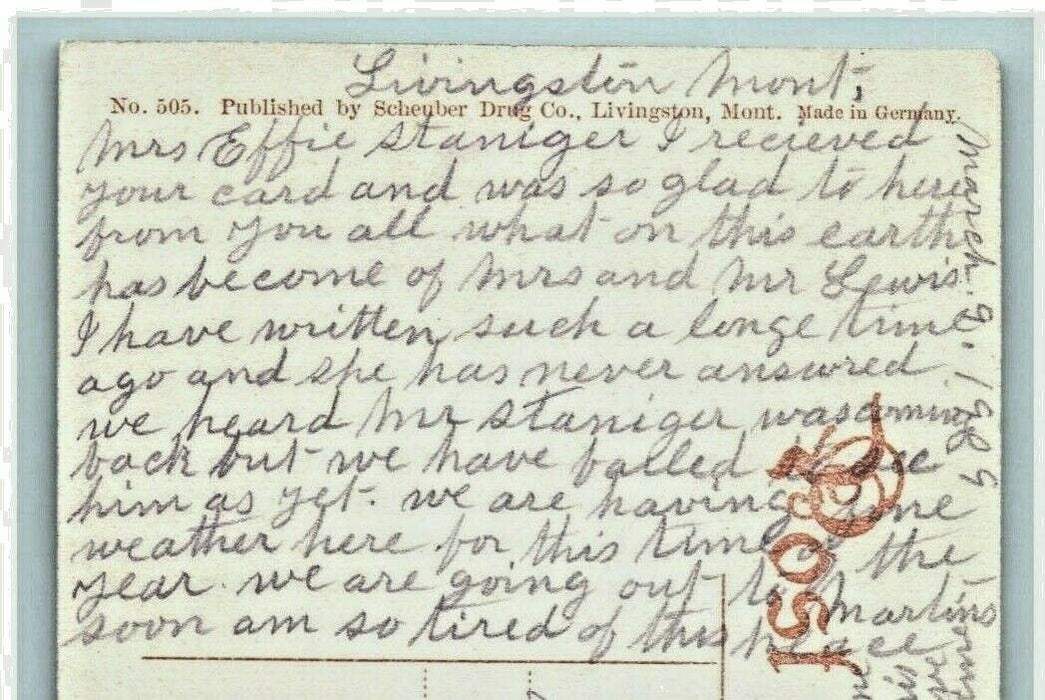 Livingston Mont,
No. 505. Published by Scheuber Drug Co., Livingston, Mont. Made in Germany.
Mrs Effie Staniger I recieved
your card and was so glad to here
from you all what on this earth
has become of Mrs and Mr Lewis
I have written such a longe time
ago and she has never answred
we heard Mr Staniger was coming
back but we have falled to see
him as yet. we are having fine
weather here for this time of the
year. we are going out to Martins
soon am so tired of this place
March. 9. 1909
Post